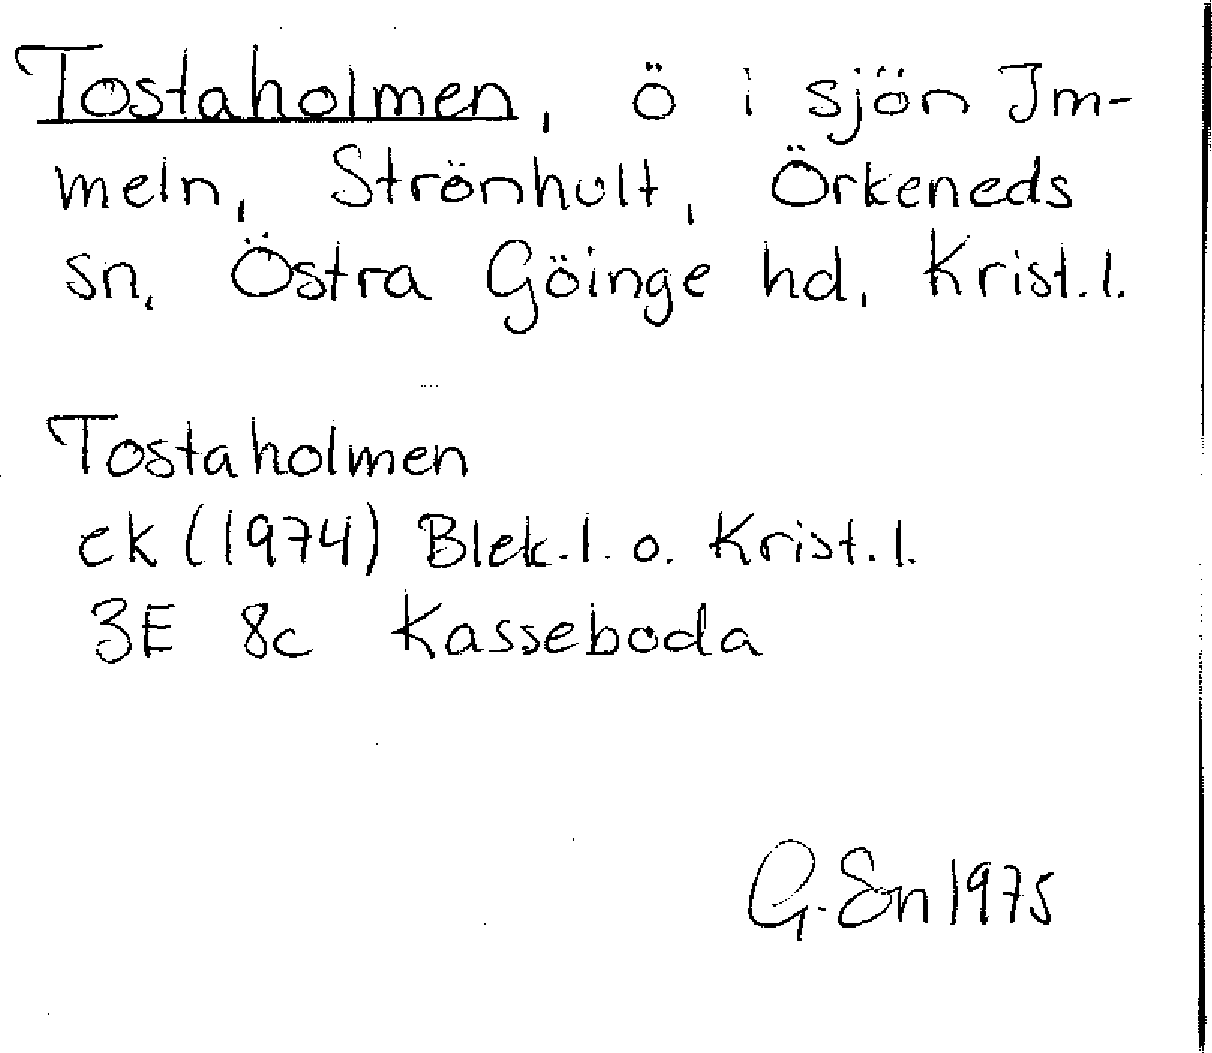 Tostaholmen, ö i sjön Im-
meln, Strönhult, Örkeneds
sn, Östra Göinge hd, Krist.l.
Tostaholmen
ek (1974) Blek.l. o. Krist.l.
3E 8c Kasseboda
G. En 1975